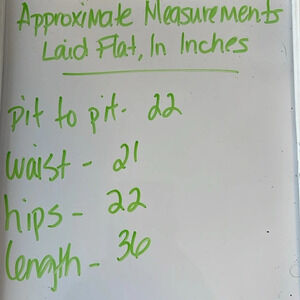 Approximate Measurements
Laid Flat, In Inches
pit to pit- 22
waist - 21
hips - 22
length - 36